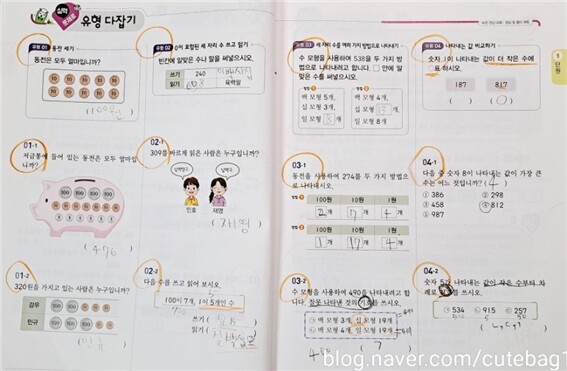 유형 다잡기
유형 01 동전 세기
동전은 모두 얼마입니까?
10 10 10 10 10
10 10 10 10 10
유형 02 0이 포함된 세 자리 수 쓰고 읽기
빈칸에 알맞은 수나 말을 써넣으시오.
쓰기 240
읽기 육백팔
608
01-1
저금통에 들어 있는 동전은 모두 얼마입니까?
100 100 100 100
(476)
02-1
309를 바르게 읽은 사람은 누구입니까?
민호 재영
(재영)
01-2
320원을 가지고 있는 사람은 누구입니까?
민규
02-2
다음 수를 쓰고 읽어 보시오.
100이 7개, 1이 5개인 수
쓰기 (
읽기 (
유형 03 세 자리 수를 여러 가지 방법으로 나타내기
수 모형을 사용하여 538을 두 가지 방법으로 나타내려고 합니다. □ 안에 알맞은 수를 써넣으시오.
방법 1 방법 2
백 모형 5개, 백 모형 4개,
십 모형 3개, 십 모형 13개,
일 모형 8개 일 모형 8개
유형 04 나타내는 값 비교하기
숫자 1이 나타내는 값이 더 작은 수에 ○표 하시오.
187 817
( ) (○)
1
단원
03-1
동전을 사용하여 274를 두 가지 방법으로 나타내시오.
방법 1
100원 10원 1원
2개 7개 4개
방법 2
100원 10원 1원
1개 17개 4개
04-1
다음 중 숫자 8이 나타내는 값이 가장 큰 수는 어느 것입니까? (4)
① 386 ② 298
③ 458 ④ 812
⑤ 987
03-2
수 모형을 사용하여 490을 나타내려고 합니다. 잘못 나타낸 것의 기호를 쓰시오.
㉠ 백 모형 3개, 십 모형 19개
㉡ 백 모형 4개, 일 모형 19개
04-2
숫자 5가 나타내는 값이 작은 수부터 차례로 기호를 쓰시오.
㉠ 534 ㉡ 915 ㉢ 257
blog.naver.com/cutebag1